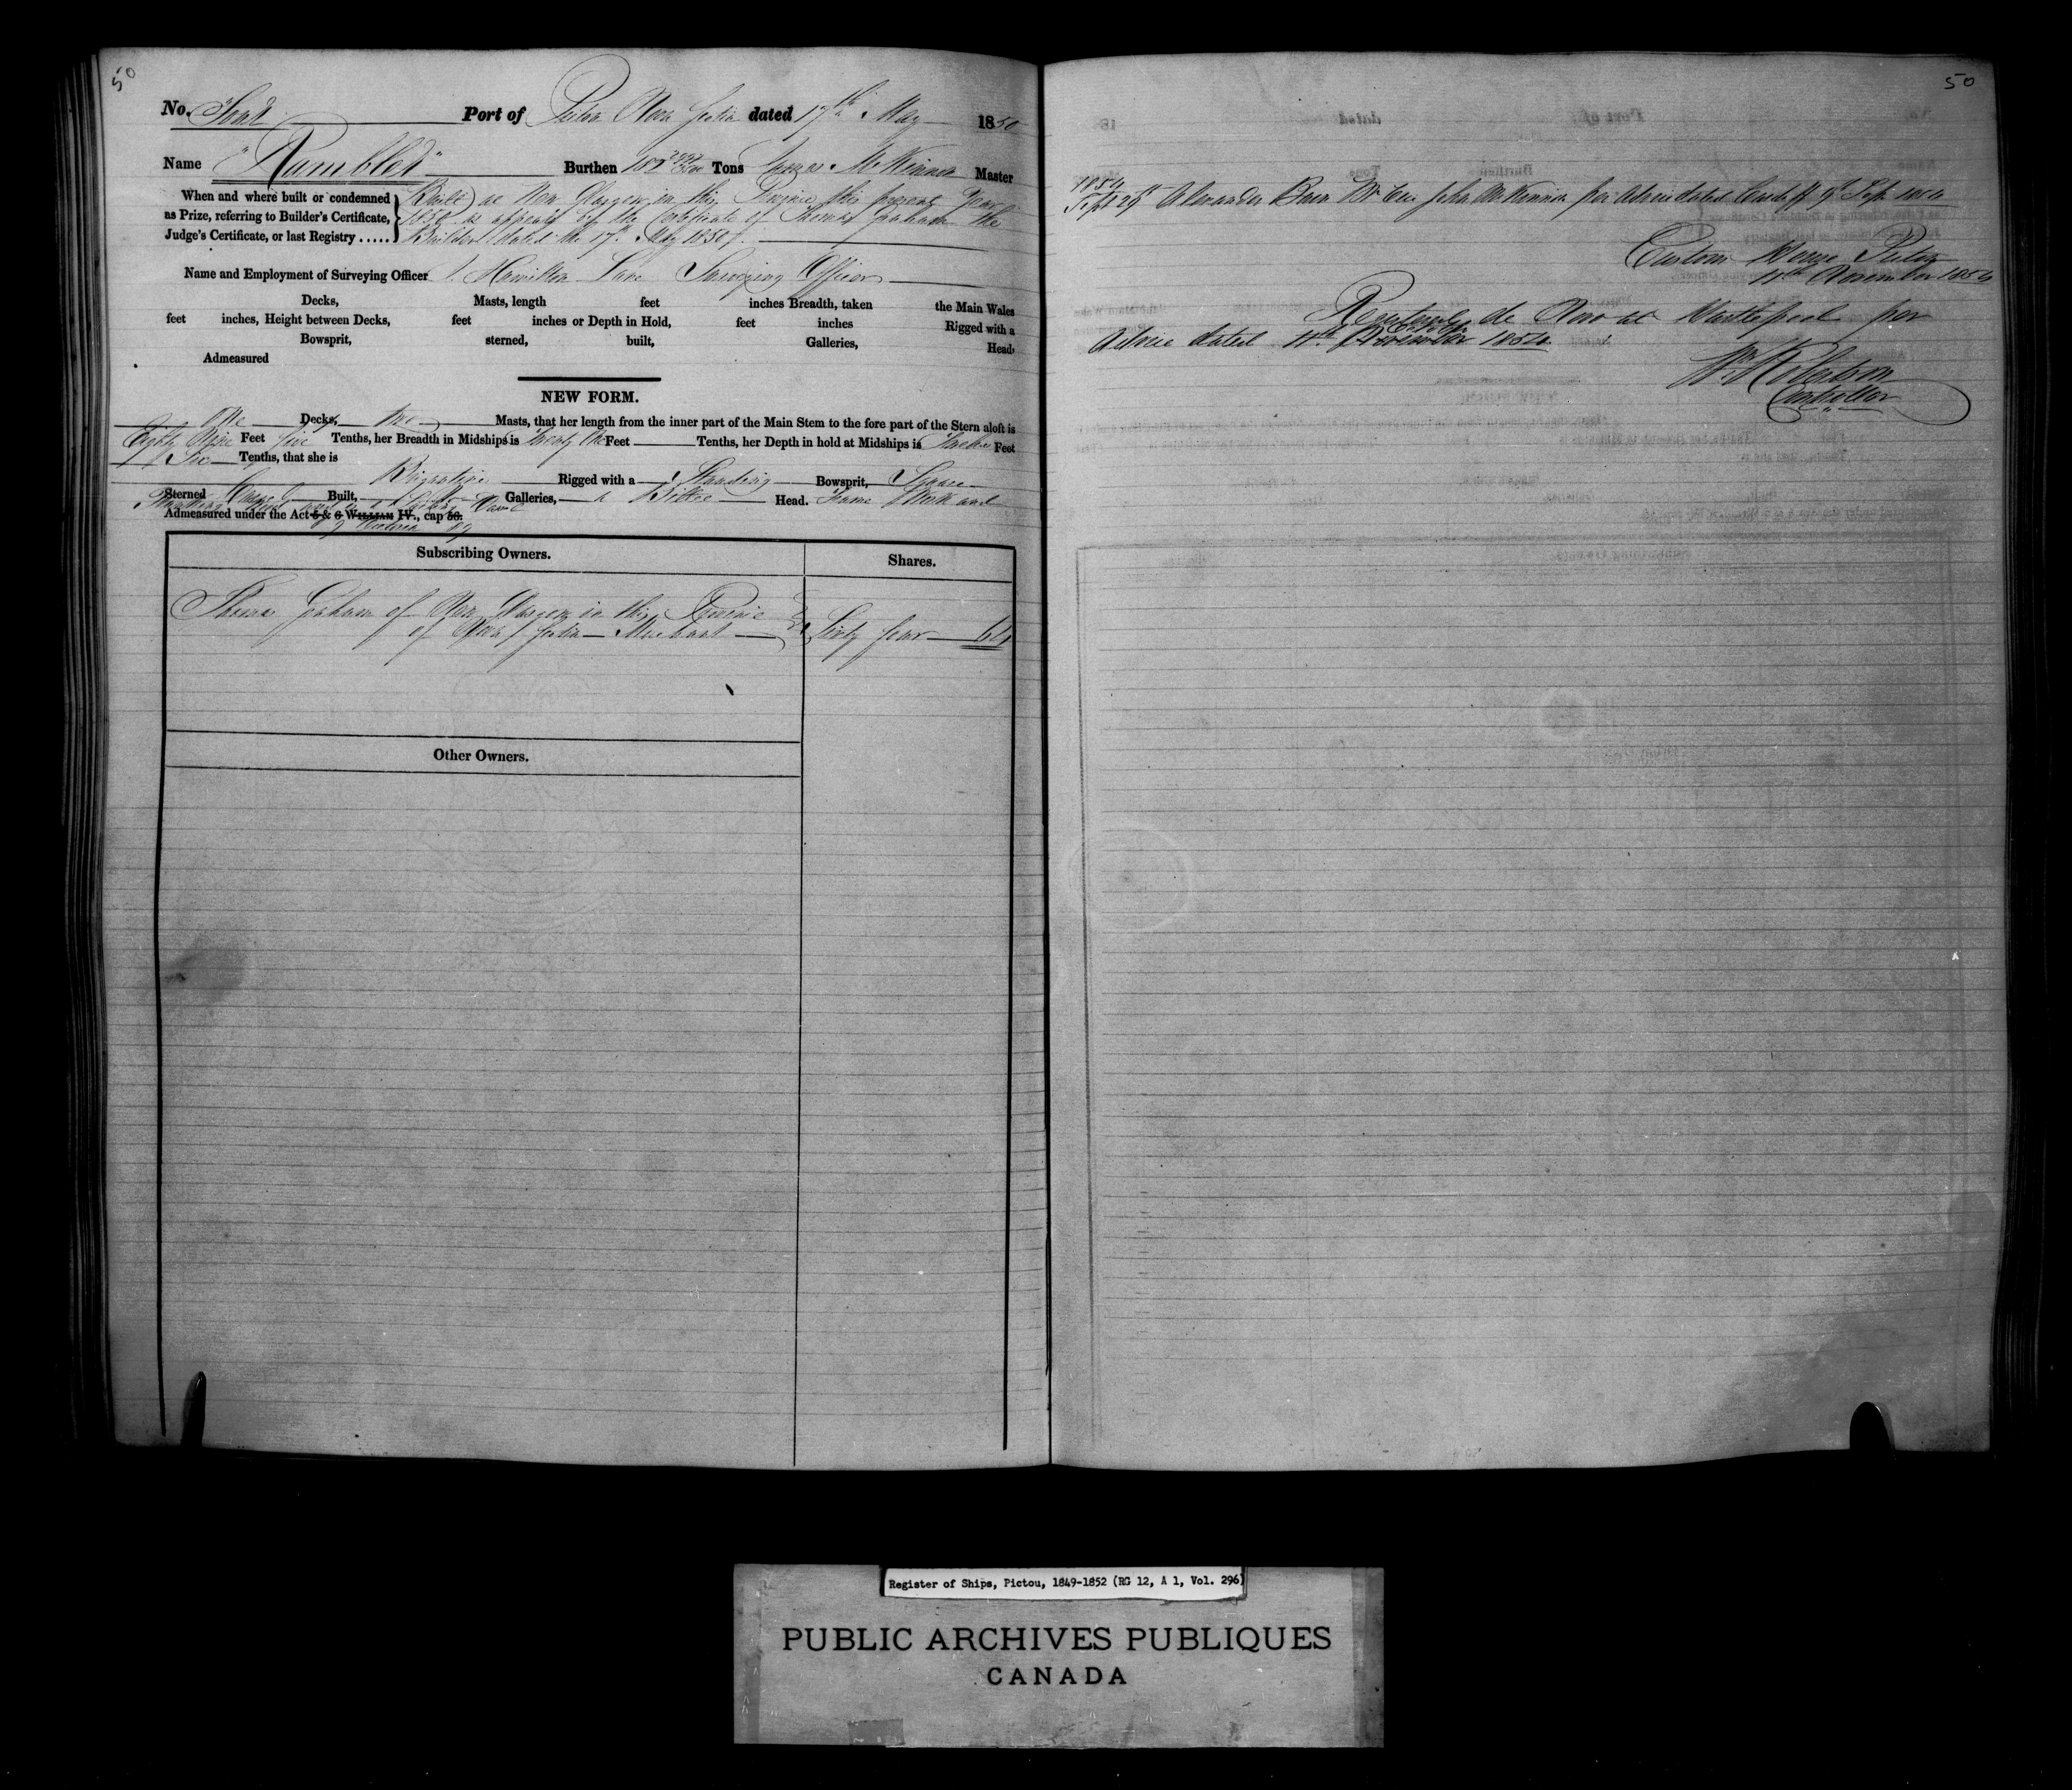 50
No. Four Port of Pictou Nova Scotia dated 17th May 1850
Name "Rambler" Burthen Tons McKinnon Master
When and where built or condemned
as Prize, referring to Builder's Certificate,
Judge's Certificate, or last Registry .....
Built at New Glasgow in this Province this present Year
1850 as appears by the Certificate of Thomas Graham the
Builder dated the 17th May 1850.
Name and Employment of Surveying Officer Hamilton Lane Surveying Officer
Decks, Masts, length feet inches Breadth, taken the Main Wales
feet inches, Height between Decks, feet inches or Depth in Hold, feet inches Rigged with a
Bowsprit, sterned, built, Galleries, Head,
Admeasured
NEW FORM.
One Decks, two Masts, that her length from the inner part of the Main Stem to the fore part of the Stern aloft is
Eighty Nine Feet five Tenths, her Breadth in Midships is Twenty One Feet Tenths, her Depth in hold at Midships is Twelve Feet
Six Tenths, that she is
Brigantine Rigged with a Standing Bowsprit, Square
Sterned Carvel Built, Galleries, a Billet Head. Frame Work and
Admeasured under the Act 5 & 6 WILLIAM IV., cap 56.
Victoria
Subscribing Owners. Shares.
Thomas Graham of New Glasgow in this Province
of Nova Scotia Merchant Sixty four 64
Other Owners.
50
1854
Sept 29 Alexander Master John McKinnon per Advice dated Cardiff 9th Sept 1854
Custom House Pictou
11th November 1854
Registered de Novo at Hartlepool per
Advice dated 11th November October 1854
W. Robertson
Controller
Register of Ships, Pictou, 1849-1852 (RG 12, A 1, Vol. 296)
PUBLIC ARCHIVES PUBLIQUES
CANADA